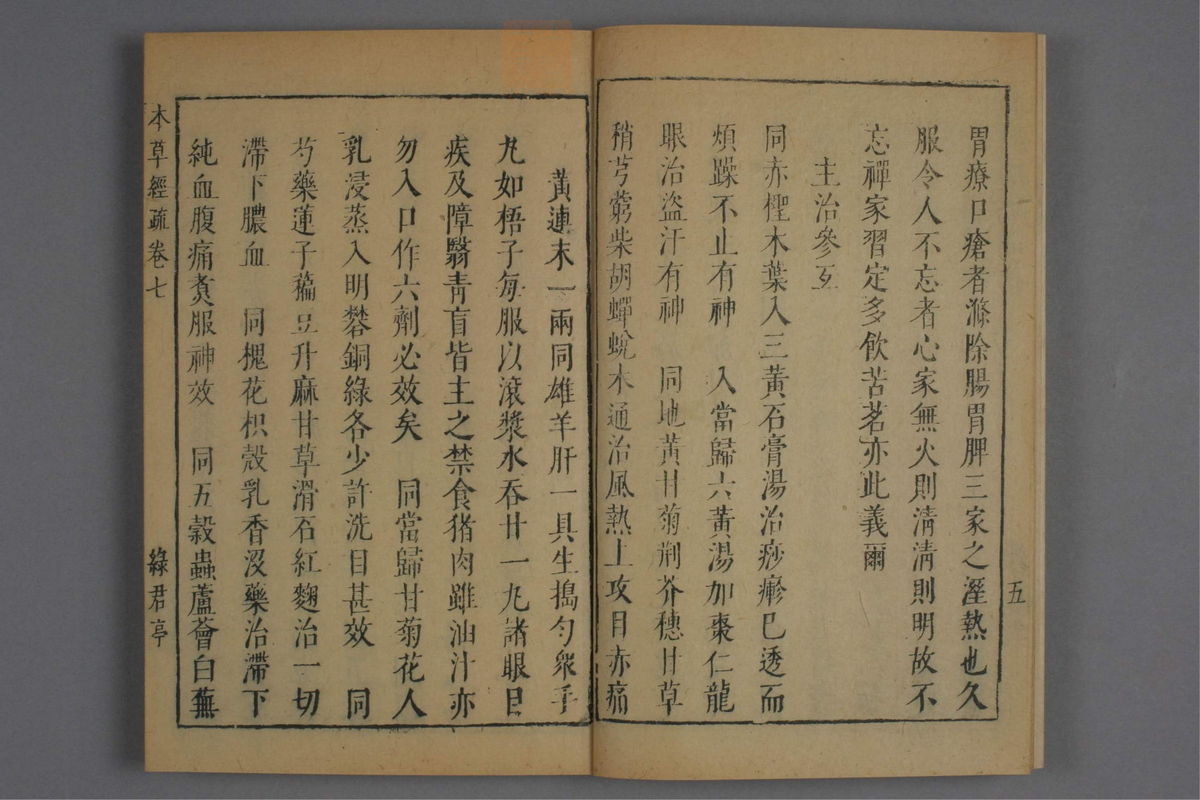 五
胃療口瘡者滌除腸胃脾三家之溼熱也久
服令人不忘者心家無火則淸淸則明故不
忘禪家習定多飲苦茗亦此義爾
主治參互
同赤檉木葉入三黃石膏湯治痧疹巳透而
煩躁不止有神　入當歸六黃湯加棗仁龍
眼治盜汗有神　同地黃甘菊荆芥穗甘草
稍芎藭柴胡蟬蛻木通治風熱上攻目赤痛
黃連末一兩同雄羊肝一具生搗勻衆手
丸如梧子每服以滾漿水吞廿一丸諸眼目
疾及障翳靑盲皆主之禁食猪肉雖油汁亦
勿入口作六劑必效矣　同當歸甘菊花人
乳浸蒸入明礬銅綠各少許洗目甚效　同
芍藥蓮子藊豆升麻甘草滑石紅麴治一切
滯下膿血　同槐花枳殼乳香沒藥治滯下
純血腹痛煑服神效　同五穀蟲蘆薈白蕪
本草經疏卷七
綠君亭